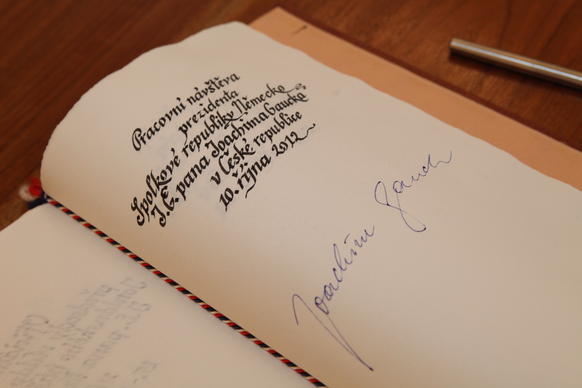 Pracovní návštěva
prezidenta
Spolkové republiky Německo
J.E. pana Joachima Gaucka
v České republice
10. října 2012
Joachim Gauck